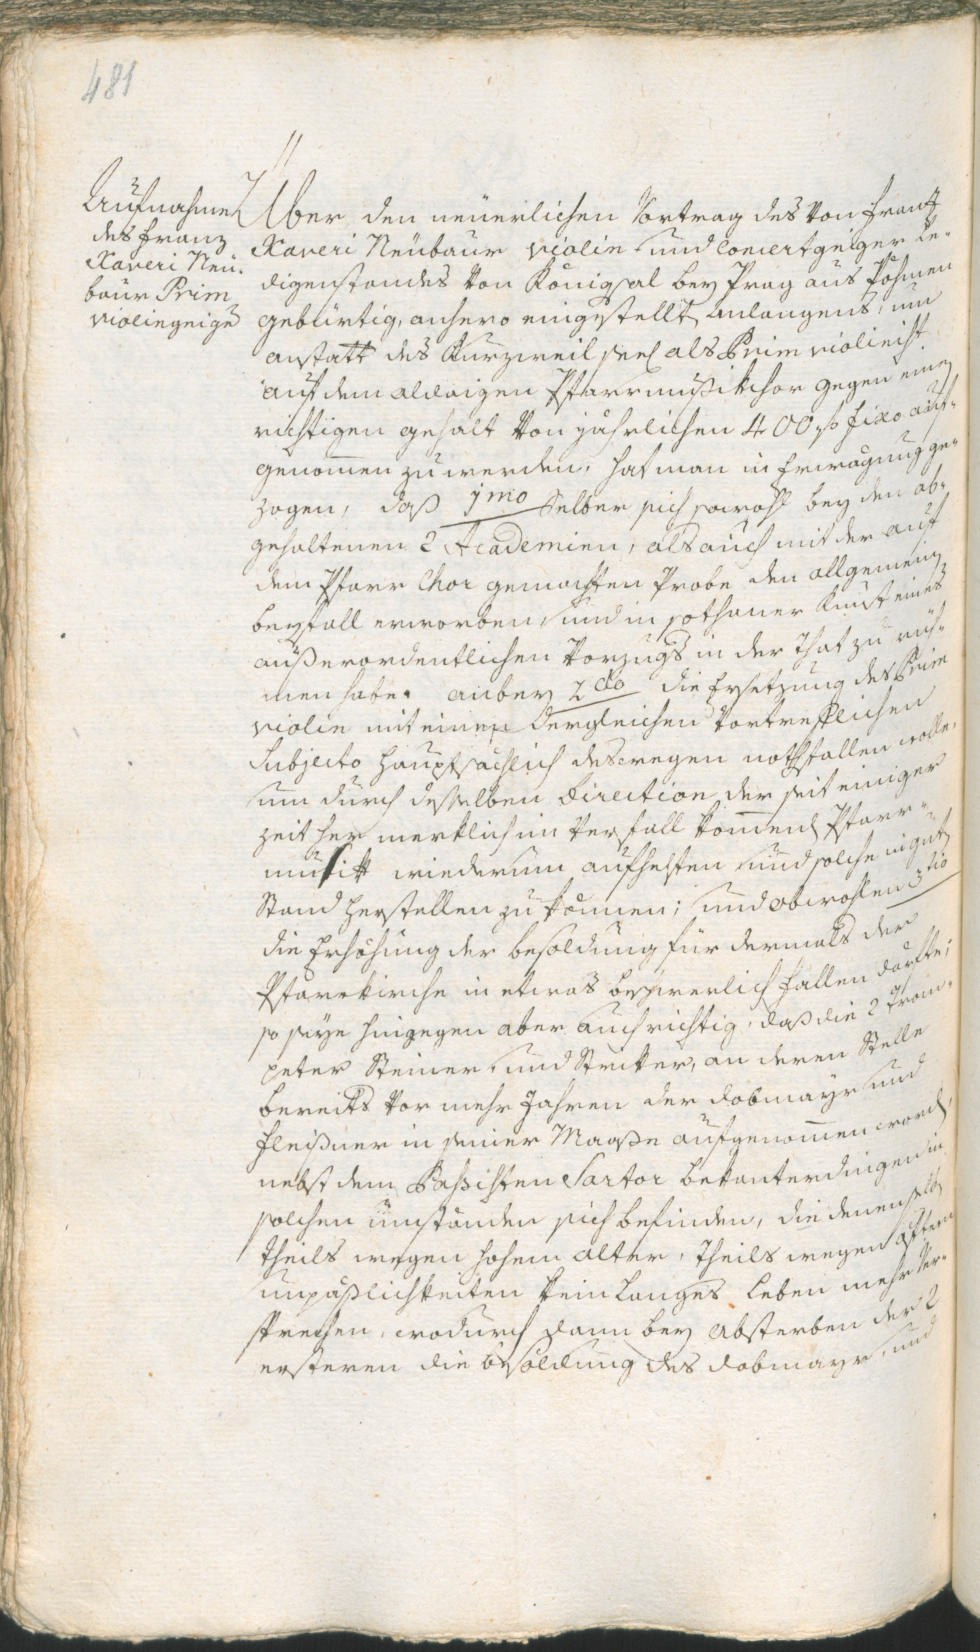 481
Aufnahme
des Franz
Xaveri Neu-
baur Prim
violingeigers
Uber den neuerlichen Vortrag des von Frantz
Xaveri Neubaur violin und Concertgeiger le-
digenstandes von Königsal bey Prag aus Böhmen
gebürtig, anhero eingestellt Anlangens, um
anstatt des Kurzweil seel als Prim violinist
auf dem alldaigen Pfarrmusikchor gegen einen
richtigen gehalt von jährlichen 400 f fixo auf-
genommen zu werden, hat man in Erwägung ge-
zogen, daß 1mo Selber sich sowohl bey den ab-
gehaltenen 2 Academien, als auch mit der auf
dem Pfarr Chor gemachten Probe den allgemeinen
beyfall erworben, und in sothaner Kunst eines
außerordentlichen Vorzugs in der That zu rüh-
men habe. anbey 2do die Ersetzung des Prim
violin mit einem dergleichen vortrefflichen
Subjecto hauptsächlich deswegen nothfallen wolle,
um durch desselben Direction der seit einiger
zeit her merklich in Verfall kommenden Pfarr-
musik wiederum aufhelfen und solche in guten
Stand herstellen zu können; und obwohlen 3tio
die Erhöhung der besoldung für dermals der
Pfarrkirche in etwas beschwerlich fallen dörfte;
so seye hingegen aber auch richtig, daß die 2 Trom-
peter Steiner und Striker, an deren Stelle
bereits vor mehr Jahren der Dobmayr und
Fleißner in seiner Maaße aufgenommen worden,
nebst dem Bassisten Sartor bekanterdingen in
solchen umständen sich befinden, die denenselben
theils wegen hohem alter, theils wegen öftern
unpäßlichkeiten kein langes Leben mehr ver-
sprechen, wodurch dann bey Absterben der 2
ersteren die besoldung des Dobmayr, und